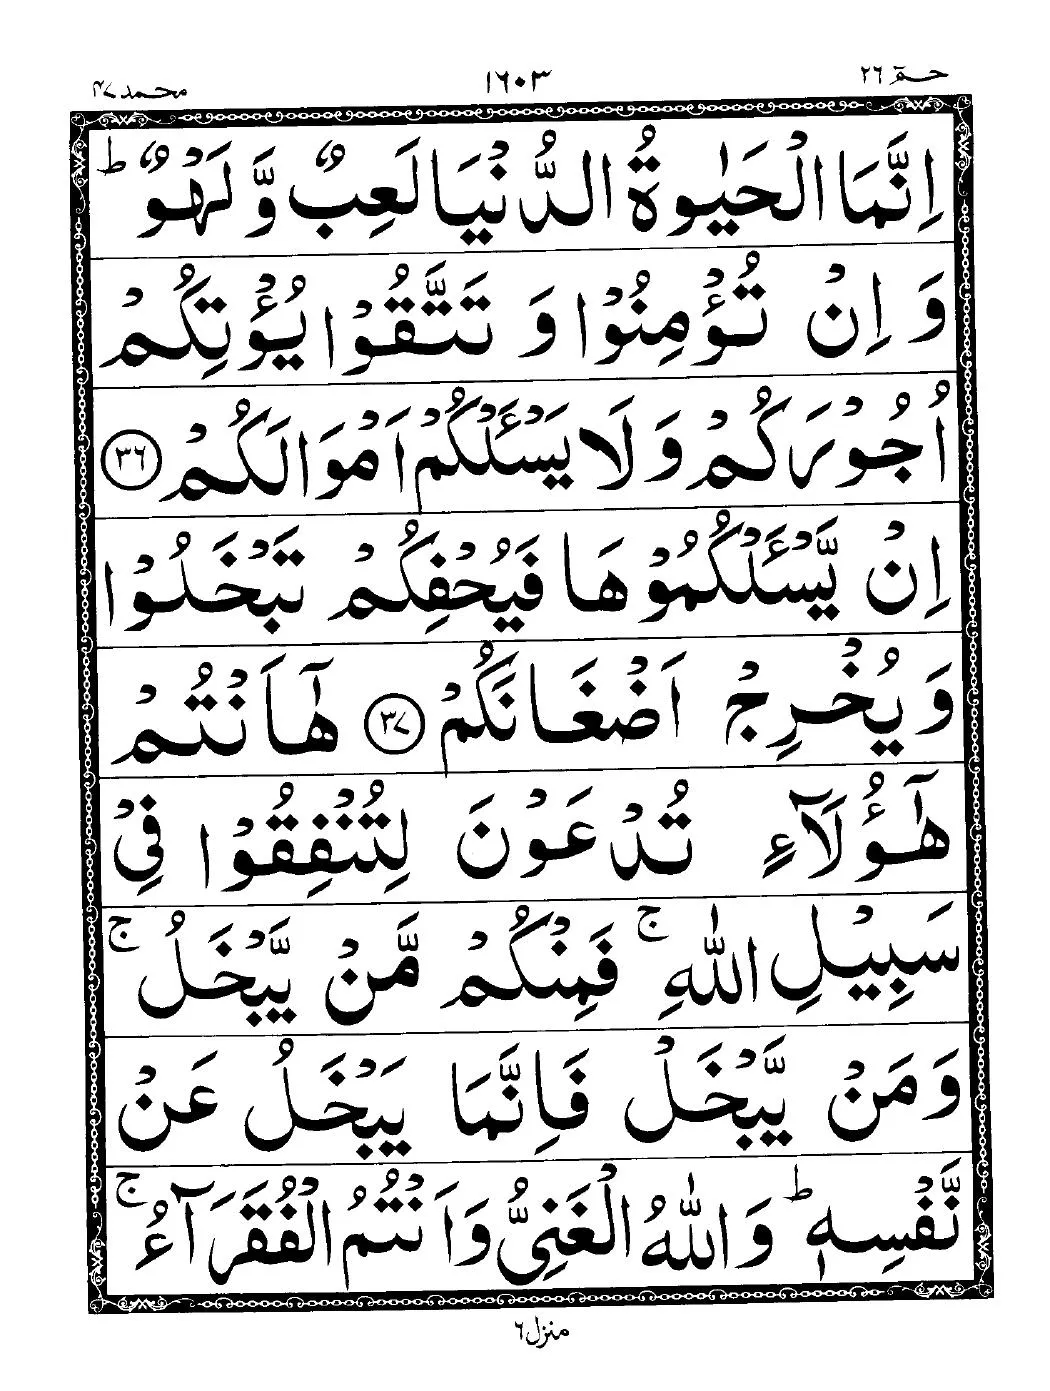 حٰمٓ ٢٦
١٦٠٣
محمد ٤٧
اِنَّمَا الْحَيٰوةُ الدُّنْيَا لَعِبٌ وَّ لَهْوٌ ؕ
وَ اِنْ تُؤْمِنُوْا وَ تَتَّقُوْا يُؤْتِكُمْ
اُجُوْرَكُمْ وَ لَا يَسْـَٔلْكُمْ اَمْوَالَكُمْ ٣٦
اِنْ يَّسْـَٔلْكُمُوْهَا فَيُحْفِكُمْ تَبْخَلُوْا
وَ يُخْرِجْ اَضْغَانَكُمْ ٣٧ هٰۤاَنْتُمْ
هٰۤؤُلَآءِ تُدْعَوْنَ لِتُنْفِقُوْا فِيْ
سَبِيْلِ اللّٰهِ ۚ فَمِنْكُمْ مَّنْ يَّبْخَلُ ۚ
وَ مَنْ يَّبْخَلْ فَاِنَّمَا يَبْخَلُ عَنْ
نَّفْسِهٖ ؕ وَ اللّٰهُ الْغَنِيُّ وَ اَنْتُمُ الْفُقَرَآءُ ۚ
منزل ٦